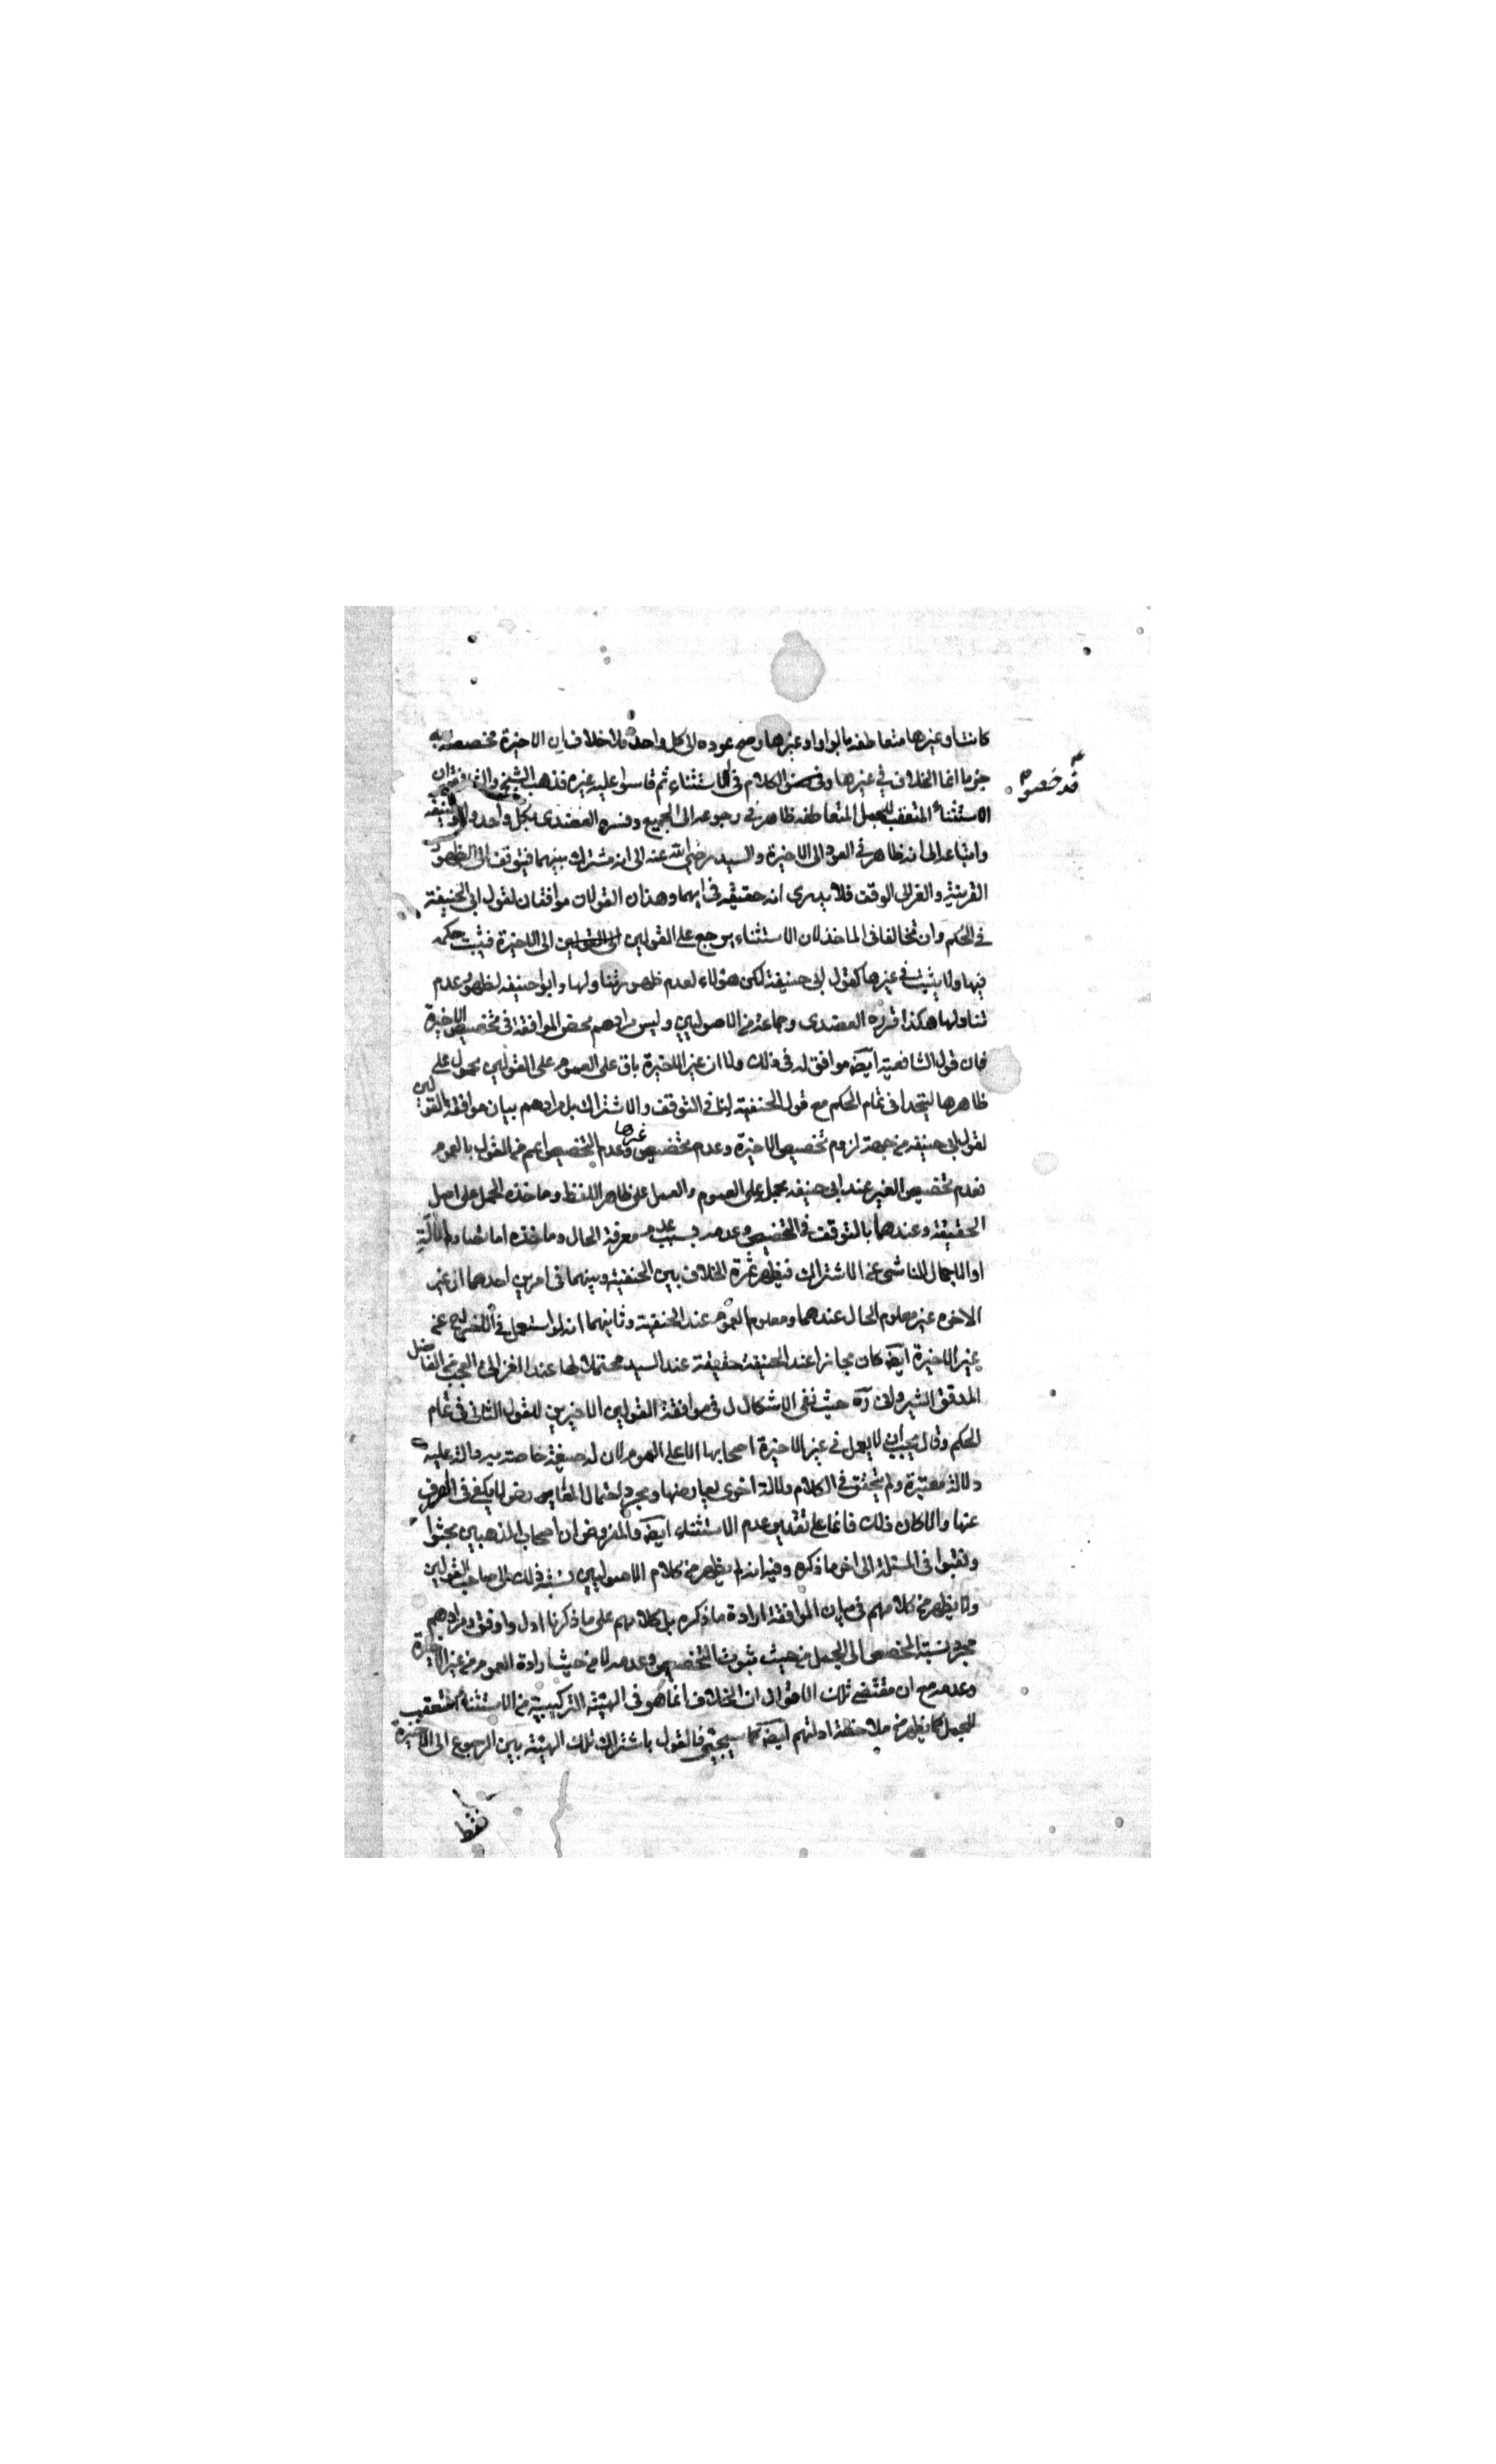 كانتا وغيرها متعاطفة بالواو او غيرها وصح عوده الى كل واحد فلا خلاف ان الاخيرة مخصصة به
جزما انما الخلاف في غيرها وفرضوا الكلام في الاستثناء ثم قاسوا عليه غيره فذهب الشيخ والشافعية ان
قد خصوص
الاستثناء المتعقب للجمل المتعاطفة ظاهر في رجوعه الى الجميع وفسره العضدى بكل واحد وابو حنيفة
واتباعه الى انه ظاهر في العود الى الاخيرة والسيد رضي الله عنه الى انه مشترك بينهما فيتوقف الى ظهور
القرينة والغزالى الوقف فلا يدرى انه حقيقة في ايهما وهذان القولان موافقان لقول ابى الحنيفة
في الحكم وان تخالفا في الماخذ لان الاستثناء يرجع على القولين الى الاخيرة فيثبت حكمه
فيها ولا يثبت في غيرها كقول ابى حنيفة لكن هؤلاء لعدم ظهور تناولها وابو حنيفة لظهور عدم
تناولها هكذا قرره العضدى وجماعة من الاصوليين وليس مرادهم محض الموافقة في تخصيص الاخيرة
فان قول الشافعية ايضا موافق له في ذلك ولا ان غير الاخيرة باق على العموم على القولين محمول على
ظاهرها ليتحدا في تمام الحكم مع قول الحنفية لمنافى التوقف والاشتراك بل مرادهم بيان موافقة القولين
لقول ابى حنيفة من جهة لزوم تخصيص الاخيرة وعدم تخصيص غيرها وعدم التخصيص اعم من القول بالعموم
فعدم تخصيص الغير عند ابى حنيفة يحمل على العموم والعمل على ظاهر اللفظ وماخذه الحمل على اصل
الحقيقة وعندهما بالتوقف في التخصيص وعدمه بسبب عدم معرفة الحال وماخذه اما تصادم الادلة
او الاجمال الناشى عن الاشتراك فيظهر ثمرة الخلاف بين الحنفية وبينهما في امرين احدهما ان غير
الاخيرة غير معلوم الحال عندهما ومعلوم العموم عند الحنفية وثانيهما انه لو استعمل في
غير الاخيرة ايضا كان مجازا عند الحنفية حقيقة عند السيد محتملا لها عند الغزالى والعجب من الفاضل
المدقق الشيرواني ره حيث نفى الاشكال في موافقة القولين الاخيرين للقول الثانى في تمام
الحكم وقال يجب ان لا يعمل في غير الاخيرة اصحابها الا على العموم لان له صيغة خاصة به دالة عليه
دلالة معتبرة ولم يتحقق في الكلام دلالة اخرى يعارضها ومجرد احتمال المعارض لا يكفى في الصرف
عنها والا كان ذلك قائما على تقدير عدم الاستثناء ايضا والمفروض ان اصحاب المذهبين بحثوا
ونقبوا في المسئلة الى اخر ما ذكره وفيه انه لم يظهر من كلام الاصوليين نسبة ذلك الى صاحب القولين
ولا يظهر من كلامهم في بيان الموافقة ارادة ما ذكره بل كلامهم على ما ذكرنا ادل واوفق ومرادهم
مجرد نسبة المخصص الى الجمل من حيث ثبوت التخصيص وعدمه لا من حيث ارادة العموم من غير الاخيرة
وعدمه مع ان مقتضى تلك الاقوال ان الخلاف انما هو في الهيئة التركيبية من الاستثناء المتعقب
للجمل كما يظهر من ملاحظة ادلتهم ايضا كما سيجئ فالقول باشتراك تلك الهيئة بين الرجوع الى الاخيرة
فقط